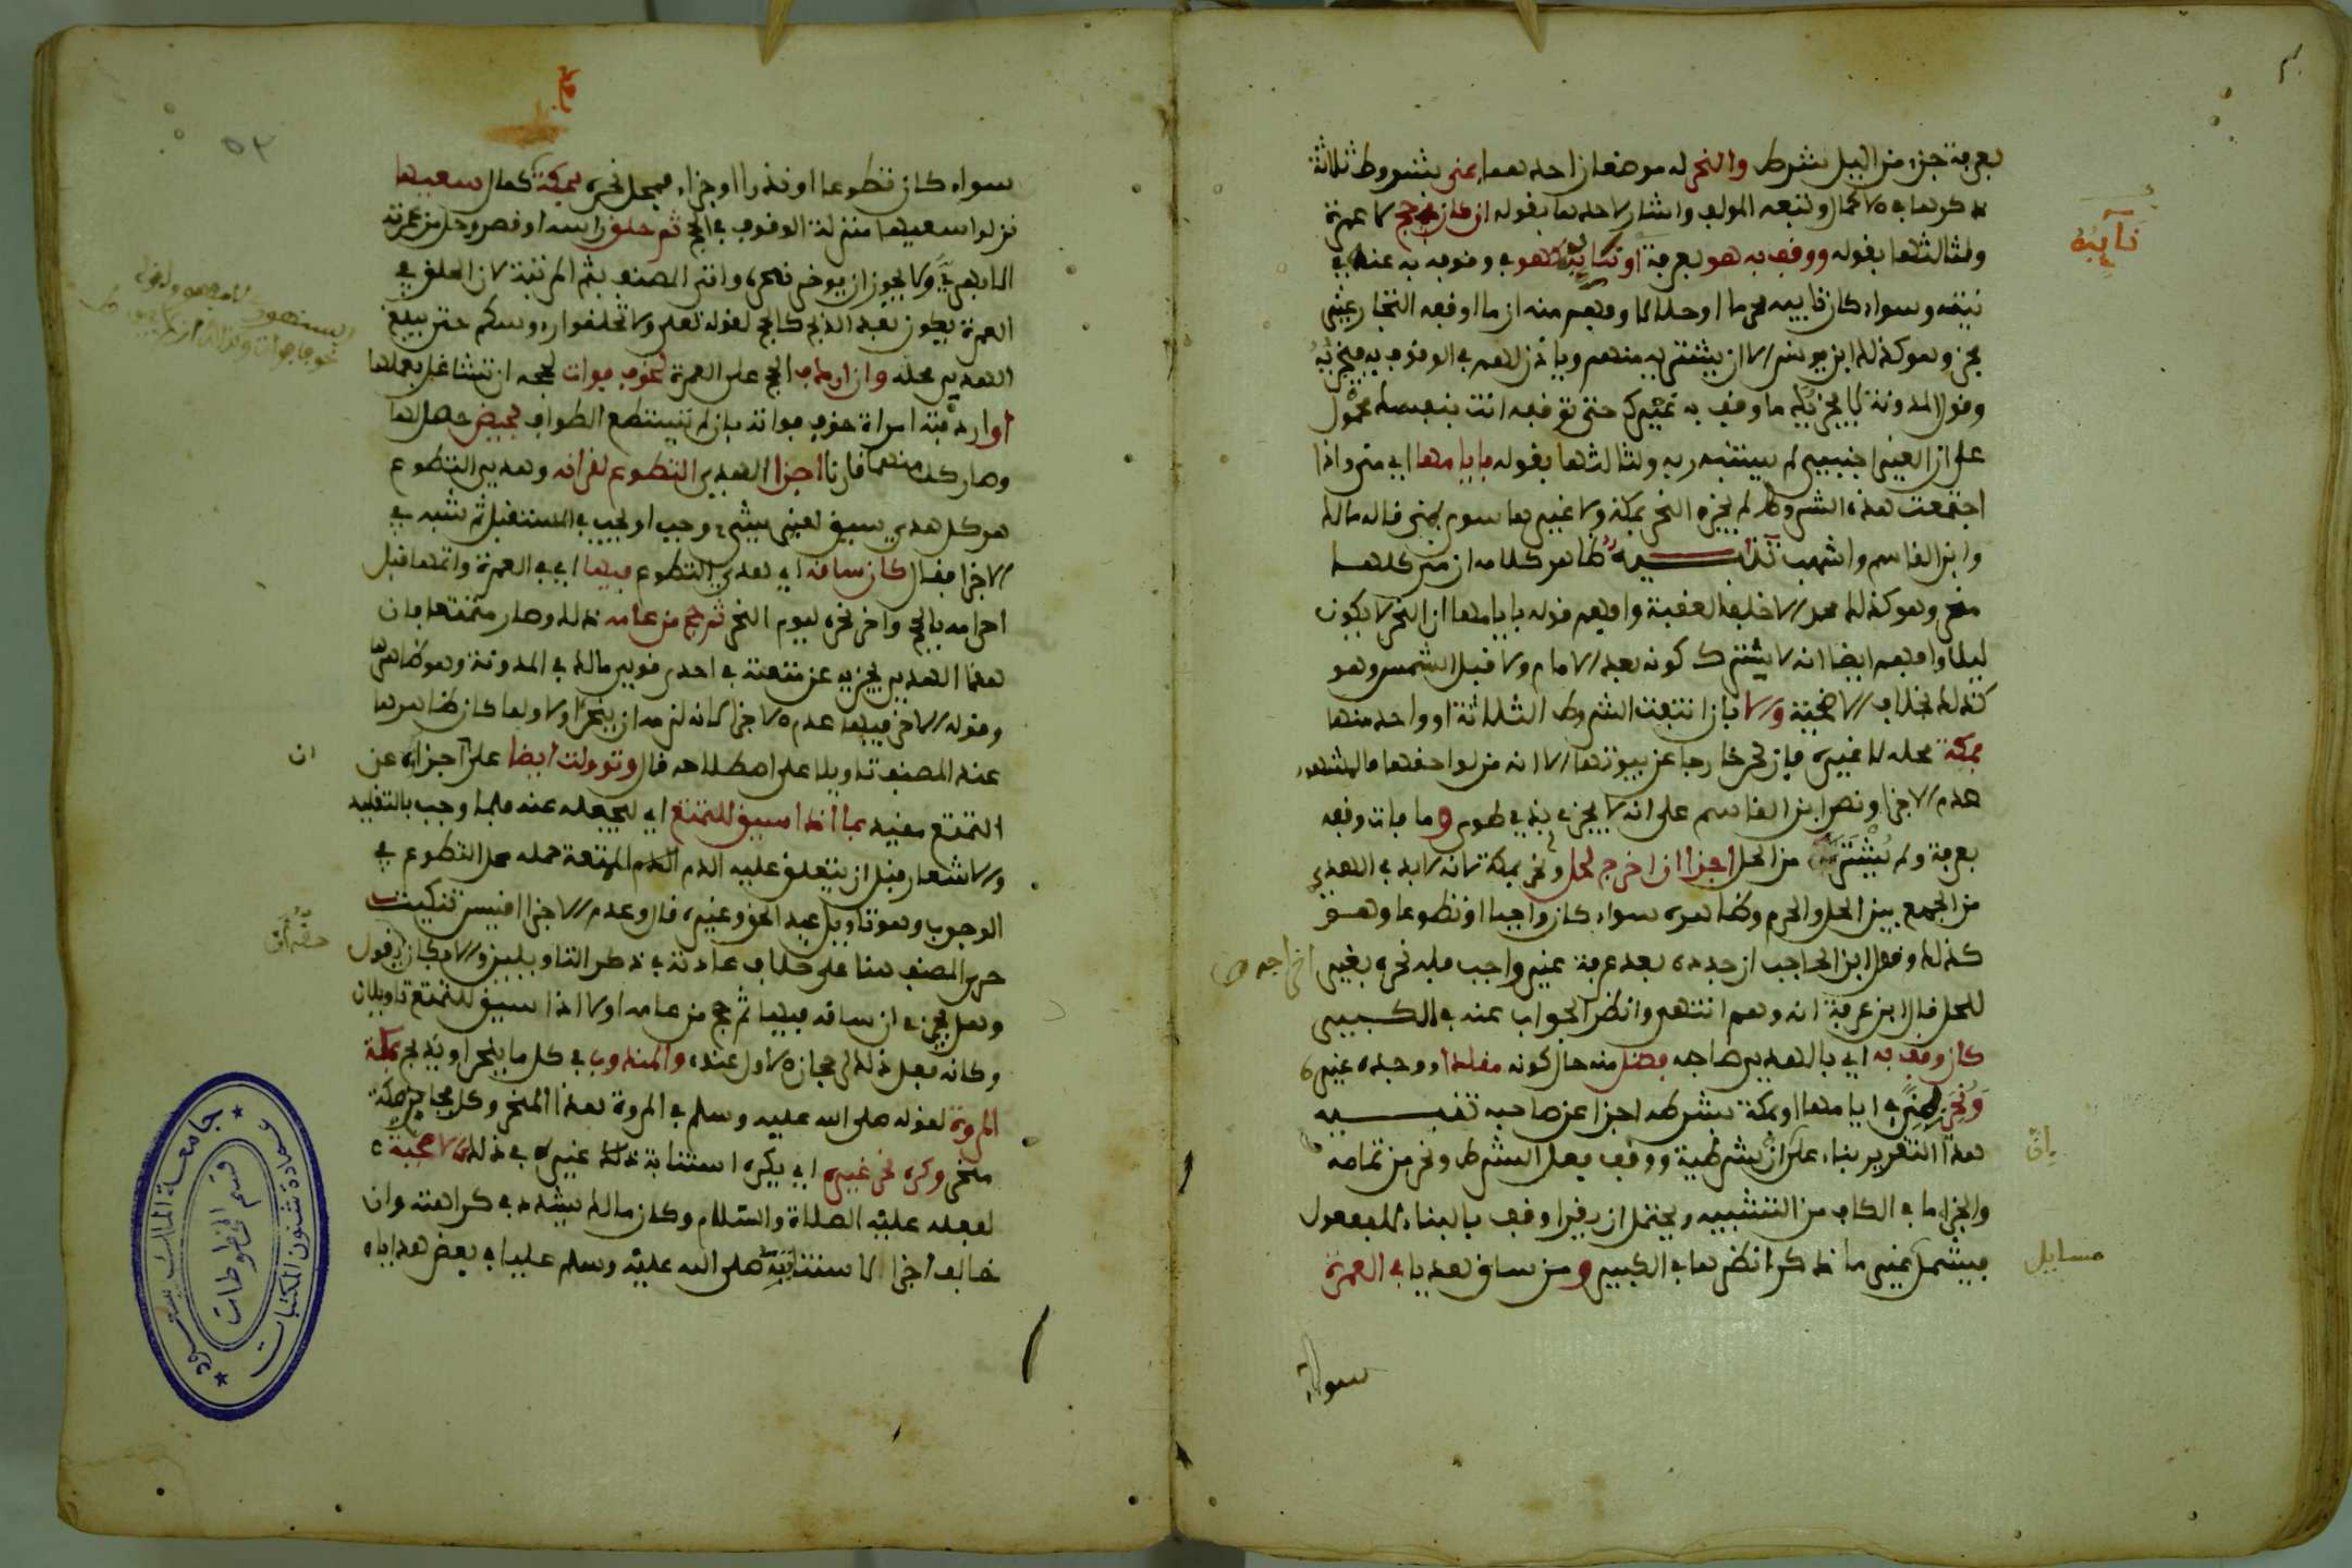 بعرفة جزء من الليل بشرط والنحر له موضعان احدهما بمنى بشروط ثلاثة
ذكرها في الاكمال وتبعه المولف واشار لاحدها بقوله ان كان في حج لا عمرة
ولثالثها بقوله ووقف به هو بعرفة او نايبه كهو في وقوفه به عنه في
نيته وسواء كان نايبه محرما او حلالا وفهم منه ان ما اوقفه التجار غير
مجز وهو كذلك ابن يونس الا ان يشتريه منهم وياذن لهم في الوقوف به فيجزيه
وقول المدونة لا يجزيك ما وقف به غيرك حتى توقفه انت بنفسك محمول
على ان الغير اجنبي لم يستنبه ربه ولثالثها بقوله بايامها اي متى واذا
اجتمعت هذه الشروط لم يجزه النحر بمكة ولا غيرها سوى بمنى قاله مالك
وابن القاسم واشهب تنبيه ظاهر كلامه ان منى كلها
منحر وهو كذلك الا خلف العقبة وافهم قوله بايامها ان النحر لا يكون
ليلا وافهم ايضا انه لا يشترك كونه بعد الامام ولا قبل الشمس وهو
كذلك بخلاف الاضحية والا بان انتفت الشروط الثلاثة او واحد منها
بمكة محله لا غيره فان نحر خارجا عن بيوتها الا انه من لواحقها فالمشهور
عدم الاجزا ونص ابن القاسم على انه لا يجزي بذي طوى وما فات وقفه
بعرفة ولم يشتر من الحل اجزا ان اخرج لحل ونحر بمكة لانه لا بد في الهدي
من الجمع بين الحل والحرم وظاهره سواء كان واجبا او تطوعا وهو
كذلك وقول ابن الحاجب ان جدده بعد عرفة غير واجب فله نحره بغير
للحل قال ابن عرفة انه وهم انتهى وانظر الجواب عنه في الكبير
كان وقف به اي بالهدي صاحبه فضل منه حال كونه مقلدا ووجده غيره
ونحر بمنى في ايامها او بمكة بشرطه اجزا عن صاحبه تنبيه
هذا التقرير بناء على ان شرطية ووقف فعل الشرط ونحر من تمامه
والجزا ما في الكاف من التشبيه ويحتمل ان يقرا وقف بالبناء للمفعول
فيشمل غير ما ذكر انظرها في الكبير ومن ساق هديا في العمرة
سواء
نايبه
اخراجه
ان
مسايل
٥٣
سواء كان تطوعا او نذرا او جزاء فمحل نحره بمكة كمال سعيها
نزلوا سعيها منزلة الوقوف في الحج ثم حلق راسه او قصر وحل من عمرته
ولا يجوز ان يوخر نحره واتى المصنف بثم المرتبة لان الحلق في
العمرة يكون بعد الذبح كالحج لقوله تعلى ولا تحلقوا رءوسكم حتى يبلغ
الهدي محله وان اردف الحج على العمرة لخوف فوات لحجه ان تشاغل بعملها
او اردفته امراة خوف فواته بان لم تستطع الطواف لحيض حصل لها
وصار كل منهما قارنا اجزا الهدي التطوع لقرانه وهدي التطوع
هو كل هدي سيق لغير شيء وجب او يجب في المستقبل ثم شبه في
الاجزا فقال كان ساقه اي هدي التطوع فيها اي في العمرة واتمها قبل
احرامه بالحج واخر نحره ليوم النحر ثم حج من عامه ذلك وصار متمتعا فان
هذا الهدي يجزيه عن متعته في احدى قولي مالك في المدونة وهو ظاهرها
وقوله الاخر فيها عدم الاجزا لانه لزمه ان ينحر اولا ولما كان ظاهرها
عند المصنف تاويلا على اصطلاحه قال وتوولت ايضا على اجزايه عن
التمتع مقيد بما اذا سيق للتمتع اي ليجعله عنه فلما وجب بالتقليد
والاشعار قبل ان يتعلق عليه الدم للمتعة حمله محل التطوع في
الوجوب وهو تاويل عبد الحق وغيره قال وعدم الاجزا اقيس تنكيت
جرى المصنف هنا على خلاف عادته في ذكر التاويلين والا فكان يقول
وهل يجزي ان ساقه فيها ثم حج من عامه اولا اذا سيق للتمتع تاويلان
وكانه فعل ذلك لرجحان الاول عنده والمندوب في كل ما ينحر او يذبح بمكة
المروة لقوله صلى الله عليه وسلم في المروة هذا المنحر وكل فجاج مكة
منحر وكره نحر غيره اي يكره استنابة غيره في ذلك كالاضحية
لفعله عليه الصلاة والسلام وكان مالك يشدد في كراهته وان
خالف اجزا لاستنابته صلى الله عليه وسلم عليا في بعض هداياه
ان
جامعة الملك سعود
عمادة شئون المكتبات
قسم المخطوطات